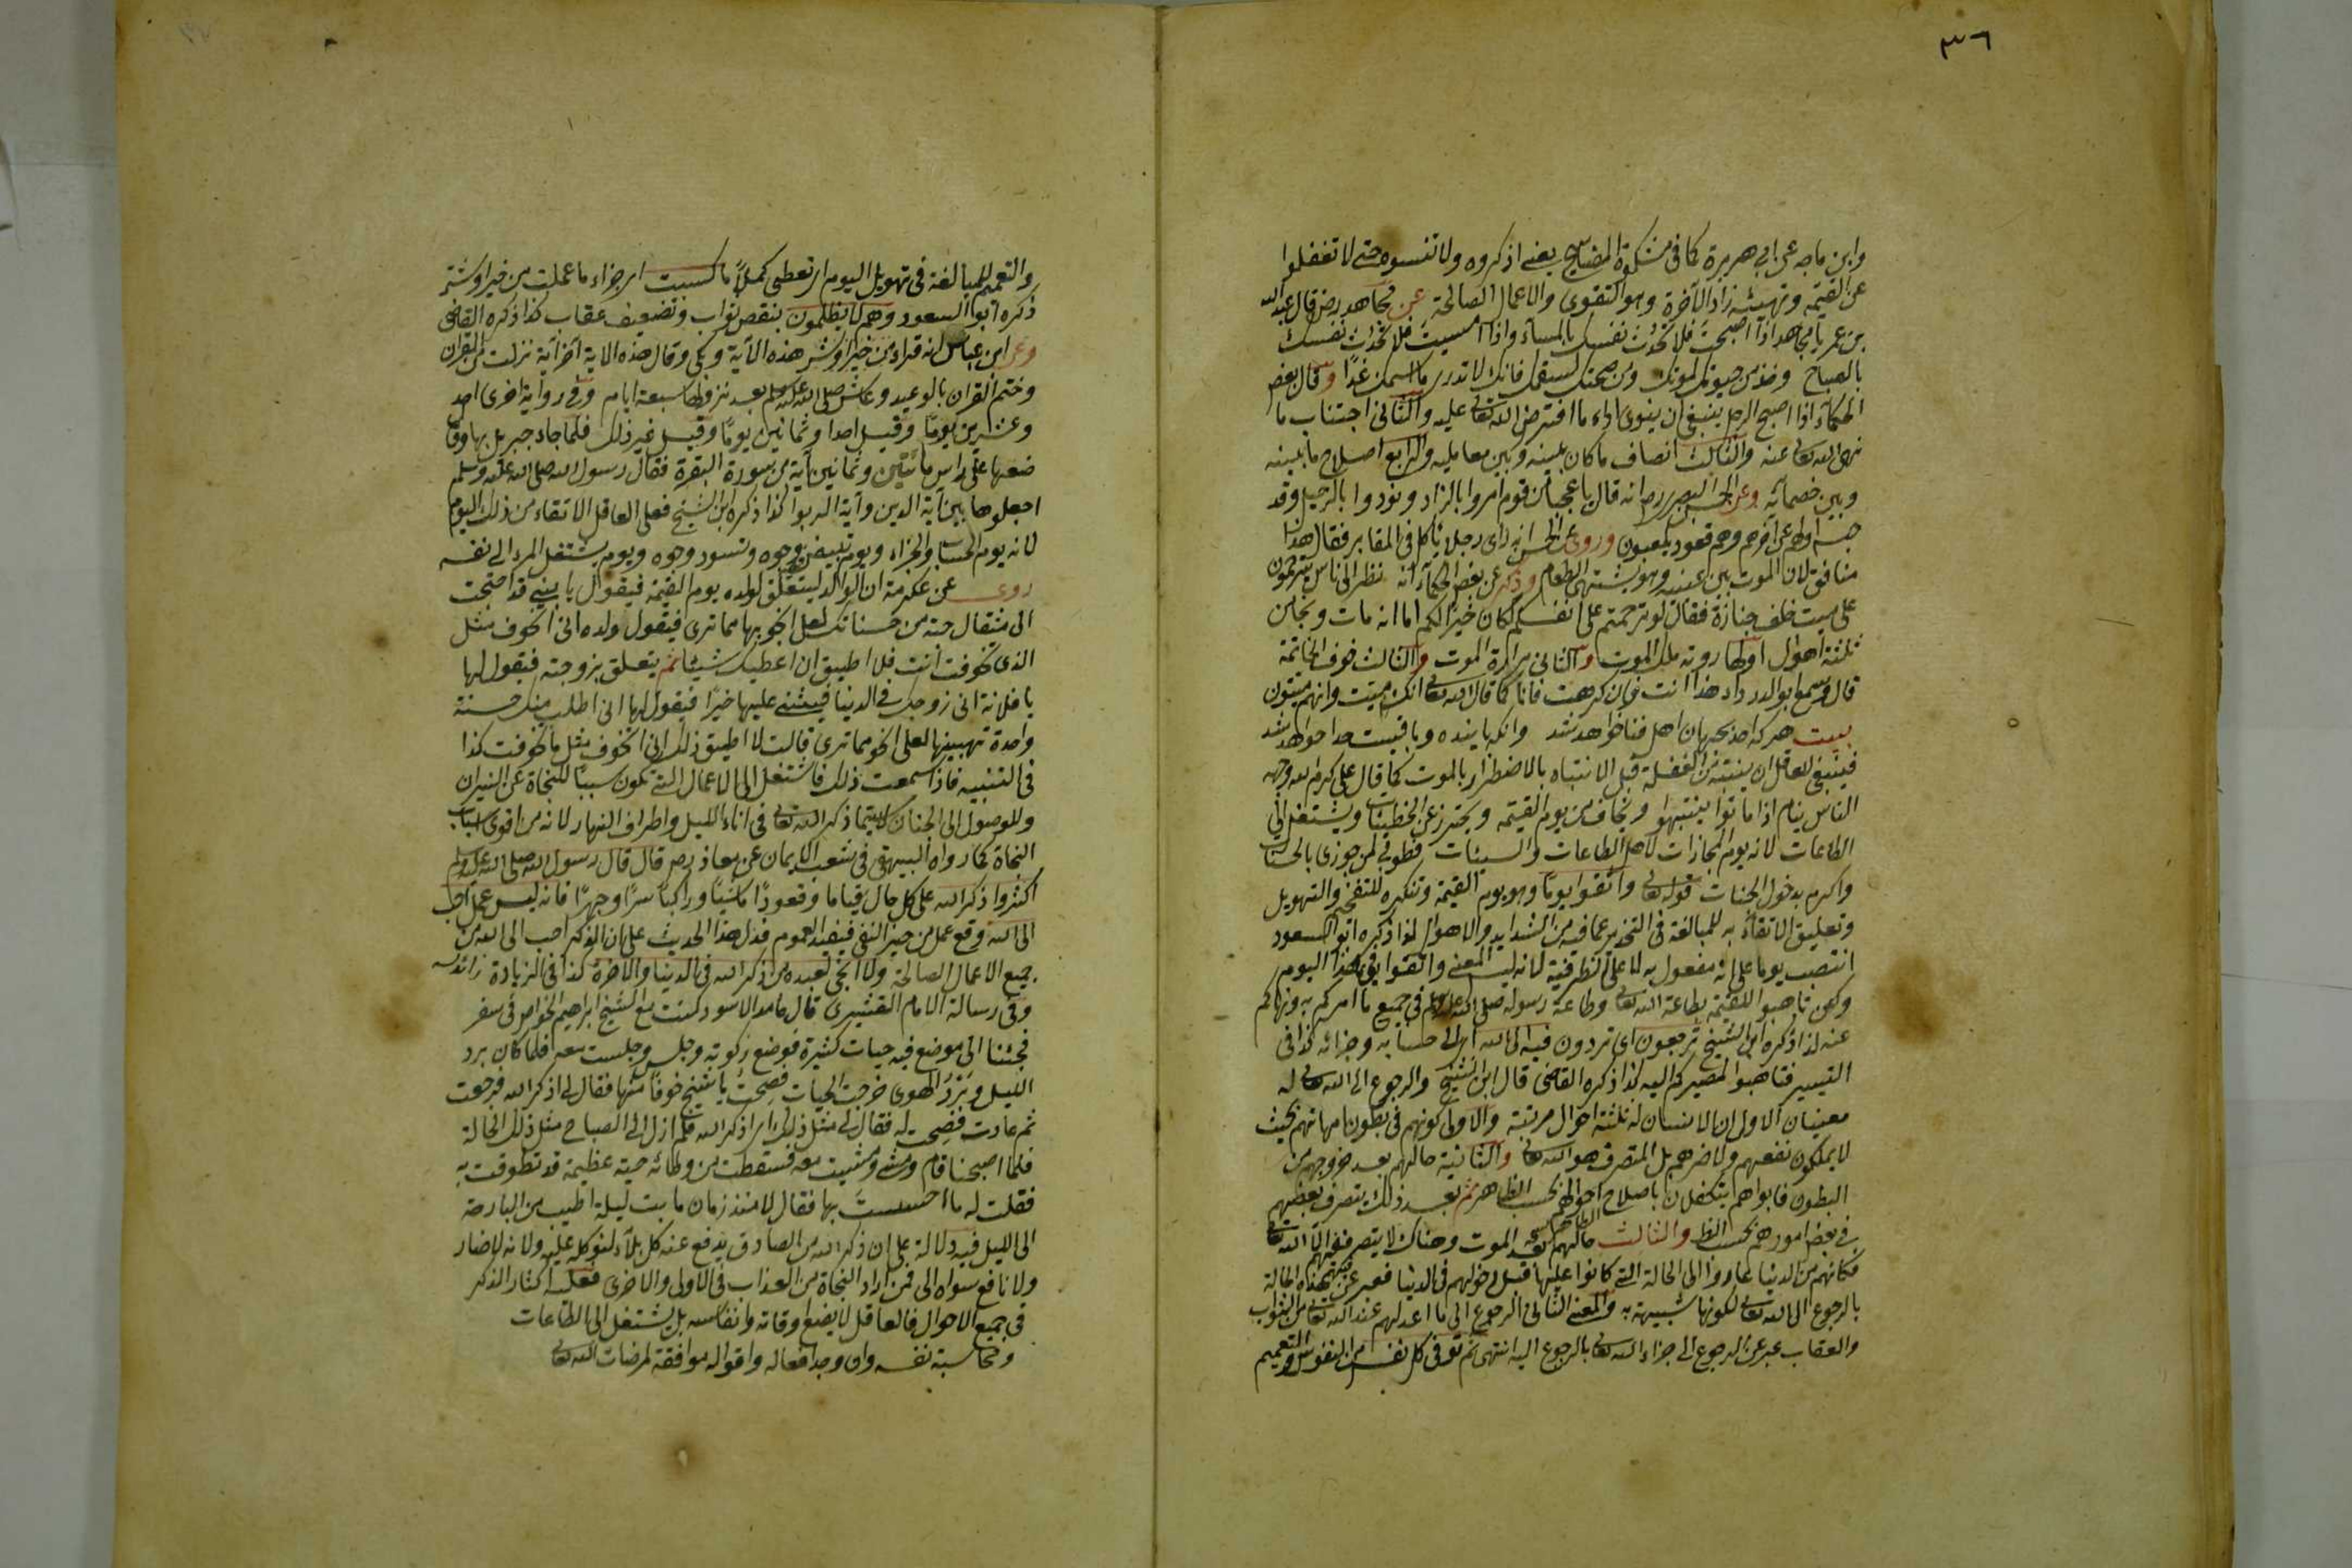 ٣٦
وابن ماجه عن ابي هريرة كما في مشكوة المصابيح يعنى اذكروه ولا تنسوه حتى لا تغفلوا
عن القيمة وتهيئة زاد الآخرة وهو التقوى والاعمال الصالحة عن مجاهد رض قال عبد الله
بن عمر يا مجاهد اذا اصبحت فلا تحدث نفسك بالمساء واذا امسيت فلا تحدث نفسك
بالصباح وخذ من حيوتك لموتك ومن صحتك لسقمك فانك لا تدرى ما اسمك غدا وقال بعض
الحكماء اذا اصبح الرجل ينبغى ان ينوى اداء ما افترض الله تعالى عليه والثانى اجتناب ما
نهى الله تعالى عنه والثالث انصاف ما كان بينه وبين معامليه والرابع اصلاح ما بينه
وبين خصمائه وعن الحسن البصرى رح انه قال يا عجبا من قوم امروا بالزاد ونودوا بالرحيل وقد
حبس اولهم عن آخرهم وهم قعود يلعبون وروى عن الحسن انه راى رجلا ياكل في المقابر فقال هذا
منافق لان الموت بين عينيه وهو يشتهى الطعام وذكر عن بعض الحكماء انه نظر الى ناس يترحمون
على ميت خلف جنازة فقال لو ترحمتم على انفسكم لكان خيرا لكم اما انه مات ونجا من
ثلثة اهوال اولها روية ملك الموت والثانى مرارة الموت والثالث خوف الخاتمة
قال وسمع ابو الدرداء هذا انت فان كرهت فانا كما قال الله تعالى انك ميت وانهم ميتون
بيت هر كه امد بجهان اهل فنا خواهد شد وانكه پاينده وباقيست خدا خواهد شد
فينبغى للعاقل ان ينتبه من الغفلة قبل الانتباه بالاضطرار بالموت كما قال على كرم الله وجهه
الناس نيام اذا ماتوا ينتبهوا ويخاف من يوم القيمة ويحترز عن الخطيئات ويشتغل الى
الطاعات لانه يوم المجازات لاهل الطاعات والسيئات فطوبى لمن جوزى بالحسنات
واكرم بدخول الجنات قوله تعالى واتقوا يوما وهو يوم القيمة وتنكيره للتفخيم والتهويل
وتعليق الاتقاء به للمبالغة في التحذير عما فيه من الشدايد والاهوال كذا ذكره ابو السعود
انتصب يوما على انه مفعول به لا على الظرفية لانه ليس المعنى واتقوا في هذا اليوم
ولكن تاهبوا للقيمة بطاعة الله تعالى وطاعة رسوله صلى الله عليه وسلم في جميع ما امركم به ونهاكم
عنه كذا ذكره ابن الشيخ ترجعون اى تردون فيه الى الله اى الى حسابه وجزائه كذا في
التيسير فتاهبوا لمصيركم اليه كذا ذكره القاضى قال ابن الشيخ والرجوع الى الله تعالى له
معنيان الاول ان الانسان له ثلثة احوال مرتبة والاولى كونهم في بطون امهاتهم بحيث
لا يملكون نفعهم ولا ضرهم بل المتصرف هو الله تعالى والثانية حالهم بعد خروجهم من
البطون فابواهم يتكفلان باصلاح احوالهم بحسب الظاهر ثم بعد ذلك يتصرف بعضهم
في بعض امورهم بحسب الظاهر والثالث حالهم بعد الموت وهناك لا يتصرف فيهم الا الله تعالى
فكانهم من الدنيا عادوا الى الحالة التى كانوا عليها قبل دخولهم في الدنيا فعبر عن هذه الحالة
بالرجوع الى الله تعالى لكونها شبيهة به والمعنى الثانى الرجوع الى ما اعد لهم عند الله تعالى من الثواب
والعقاب عبر عن الرجوع الى جزاء الله تعالى بالرجوع اليه انتهى ثم توفى كل نفس من النفوس والتعميم
والتعميم للمبالغة في تهويل اليوم اى تعطى كملا ما كسبت اى جزاء ما عملت من خير او شر
ذكره ابو السعود وهم لا يظلمون بنقص ثواب وتضعيف عقاب كذا ذكره القاضى
وعن ابن عباس انه قراء من خير او شر هذه الآية وبكى وقال هذه الاية آخر آية نزلت من القرآن
وختم القرآن بالوعيد وعاش صلى الله عليه وسلم بعد نزولها سبعة ايام وفي رواية اخرى احد
وعشرين يوما وقيل احدا وثمانين يوما وقيل غير ذلك فلما جاء جبريل بها وقال
ضعها على راس مائتين وثمانين آية من سورة البقرة فقال رسول الله صلى الله عليه وسلم
اجعلوها بين آية الدين وآية الربوا كذا ذكره ابن الشيخ فعلى العاقل الاتقاء من ذلك اليوم
لانه يوم الحساب والجزاء ويوم تبيض وجوه وتسود وجوه ويوم يشتغل المرء الى نفسه
روى عن عكرمة ان الوالد ليتعلق لولده يوم القيمة فيقول يا بنى قد احتجت
الى مثقال حبة من حسناتك لعل انجو بها مما ترى فيقول ولده انى اتخوف مثل
الذى تخوفت انت فلا اطيق ان اعطيك شيئا ثم يتعلق بزوجته فيقول لها
يا فلانة انى زوجك في الدنيا فيثنى عليها خيرا فيقول لها انى اطلب منك حسنة
واحدة تهبينها لعلى انجو مما ترى قالت لا اطيق ذلك انى اتخوف مثل ما تخوفت كذا
في التنبيه فاذا سمعت ذلك فاشتغل الى الاعمال التى تكون سببا للنجاة عن النيران
وللوصول الى الجنان لا سيما ذكر الله تعالى في اناء الليل واطراف النهار لانه من اقوى اسباب
النجاة كما رواه البيهقى في شعب الايمان عن معاذ رض قال قال رسول الله صلى الله عليه وسلم
اكثروا ذكر الله على كل حال قياما وقعودا ماشيا وراكبا سرا وجهرا فانه ليس عمل احب
الى الله وقع عمل من حيز النفى فيفيد العموم فدل هذا الحديث على ان الذكر احب الى الله من
جميع الاعمال الصالحة ولا انجى لعبده من ذكر الله في الدنيا والآخرة كذا في الزيادة
وفي رسالة الامام القشيرى قال حامد الاسود كنت مع الشيخ ابراهيم الخواص في سفر
فجئنا الى موضع فيه حيات كثيرة فوضع ركوته وجلس وجلست معه فلما كان برد
الليل وبرد الهوى خرجت الحيات فصحت يا شيخ خوفا منها فقال لى اذكر الله فرجعت
ثم عادت فصحت له فقال لى مثل ذلك اى اذكر الله فلم ازل الى الصباح مثل ذلك الحالة
فلما اصبحنا قام ومشى ومشيت معه فسقطت من وطائه حية عظيمة قد تطوقت به
فقلت له ما احسست بها فقال لا منذ زمان ما بت ليلة اطيب من البارحة
الى الليل فيه دلالة على ان ذكر الله من الصادق يدفع عنه كل بلاء لتوكله عليه ولانه لا ضار
ولا نافع سواه الى فمن اراد النجاة من العذاب في الاولى والاخرى فعليه اكثار الذكر
في جميع الاحوال فالعاقل لا يضيع اوقاته وانفاسه بل يشتغل الى الطاعات
ومحاسبة نفسه وان وجد افعاله واقواله موافقة لمرضات الله تعالى